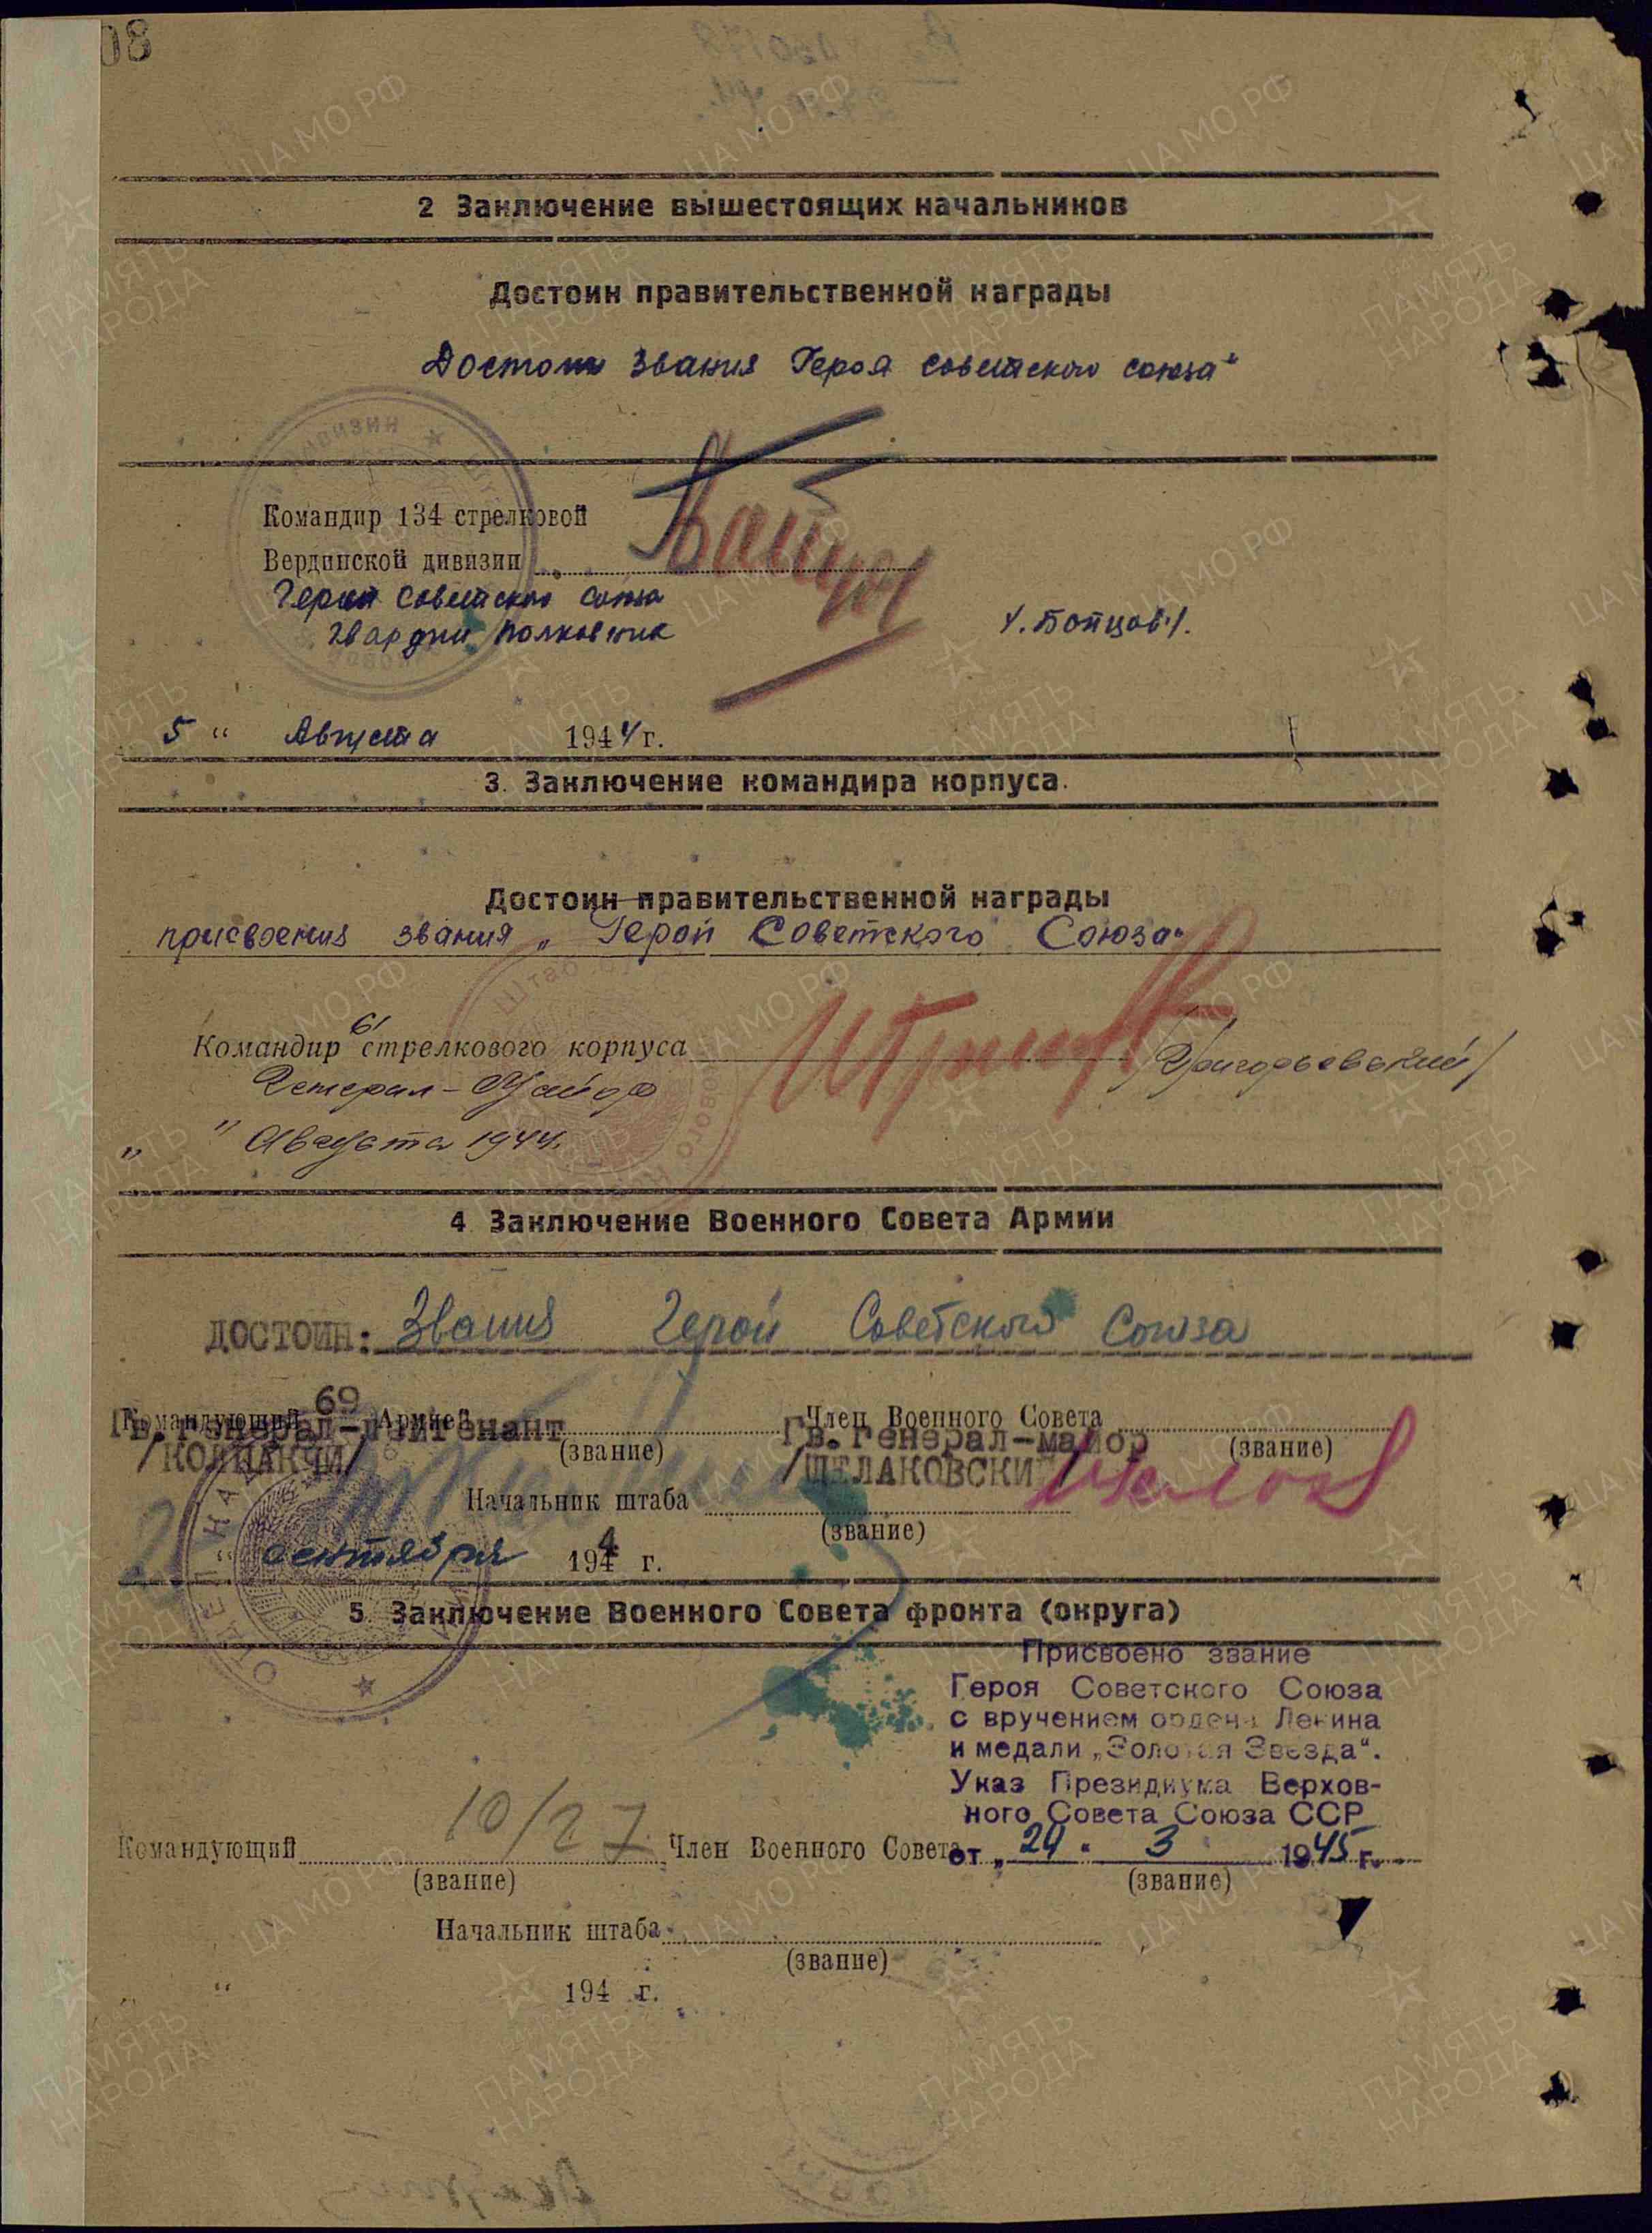 08
2 Заключение вышестоящих начальников
Достоин правительственной награды
Достоин звания Героя Советского союза"
Командир 134 стрелковой
Вердинской дивизии
Герой Советского Союза
Гвардии полковник
/.Бойцов./.
5 " Августа 1944 г.
3. Заключение командира корпуса.
Достоин правительственной награды
присвоения звания „ Герой Советского Союза"
Командир 61 стрелкового корпуса /Григорьевский/
Генерал-Майор
" " Августа 1944.
4 Заключение Военного Совета Армии
ДОСТОИН: Звания Герой Советского Союза
Командующий 69 Армией Член Военного Совета
Гв. генерал-лейтенант Гв. генерал-майор
(звание) (звание)
/КОЛПАКЧИ/ /ЩЕЛАКОВСКИ
Начальник штаба
(звание)
" сентября 1944 г.
5 Заключение Военного Совета фронта (округа)
Присвоено звание
Героя Советского Союза
с вручением ордена Ленина
и медали „Золотая Звезда".
Указ Президиума Верхов-
ного Совета Союза ССР
от „ 24 " 3 1945 г.
10/27
Командующий Член Военного Совета
(звание) (звание)
Начальник штаба
(звание)
" 194 г.
ЦА МО РФ
ПАМЯТЬ НАРОДА